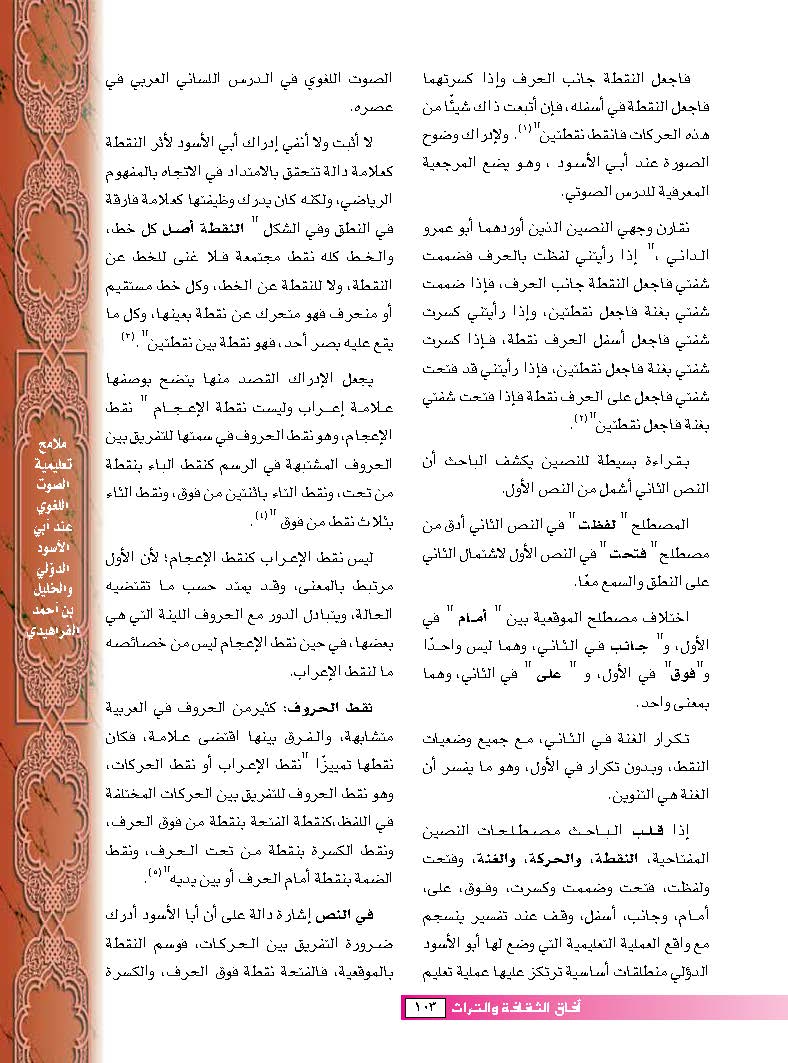 فاجعل النقطة جانب الحرف وإذا كسرتهما
فاجعل النقطة في أسفله، فإن أتبعت ذاك شيئًا من
هذه الحركات فانقط نقطتين"(١). ولإدراك وضوح
الصورة عند أبـي الأسـود ، وهـو يضع المرجعية
المعرفية للدرس الصوتي.
نقارن وجهي النصين الذين أوردهما أبو عمرو
الـدانـي ،" إذا رأيتني لفظت بالحرف فضممت
شفتي فاجعل النقطة جانب الحرف، فإذا ضممت
شفتي بغنة فاجعل نقطتين، وإذا رأيتني كسرت
شفتي فاجعل أسفل الحرف نقطة، فـإذا كسرت
شفتي بغنة فاجعل نقطتين، فإذا رأيتني قد فتحت
شفتي فاجعل على الحرف نقطة فإذا فتحت شفتي
بغنة فاجعل نقطتين"(٢).
بـقـراءة بسيطة للنصين يكشف الباحث أن
النص الثاني أشمل من النص الأول.
المصطلح " لفظت " في النص الثاني أدق من
مصطلح" فتحت " في النص الأول لاشتمال الثاني
على النطق والسمع معًا.
اختلاف مصطلح الموقعية بين " أمـام " في
الأول، و" جـانـب فـي الـثـاني، وهمـا ليس واحـدًا
و"فوق" في الأول، و " على " في الثاني، وهما
بمعنى واحد.
تـكـرار الغنة فـي الـثـانـي، مـع جميع وضعيات
النقط، وبـدون تكرار في الأول، وهو ما يفسر أن
الغنة هي التنوين.
إذا قـلـب الـبـاحـث مـصـطـلـحـات النصين
المفتاحية، النقطة، والحركة، والغنة، وفتحت
ولفظت، فتحت وضممت وكسرت، وفـوق، على،
أمـام، وجانب، أسفل، وقـف عند تفسير ينسجم
مع واقع العملية التعليمية التي وضع لها أبو الأسود
الدؤلي منطلقات أساسية ترتكز عليها عملية تعليم
الصوت اللغوي في الـدرس اللساني العربي في
عصره.
لا أثبت ولا أنفي إدراك أبي الأسود لأثر النقطة
كعلامة دالة تتحقق بالامتداد في الاتجاه بالمفهوم
الرياضي، ولكنه كان يدرك وظيفتها كعلامة فارقة
في النطق وفي الشكل " النقطة أصـل كل خط،
والـخـط كله نقط مجتمعة فـلا غنى للخط عن
النقطة، ولا للنقطة عن الخط، وكل خط مستقيم
أو منحرف فهو متحرك عن نقطة بعينها، وكل ما
يقع عليه بصر أحد، فهو نقطة بين نقطتين"،(٣)
يجعل الإدراك القصد منها يتضح بوصفها
عـلامـة إعـراب وليست نقطة الإعـجـام " نقط
الإعجام، وهو نقط الحروف في سمتها للتفريق بين
الحروف المشتبهة في الرسم كنقط الباء بنقطة
من تحت، ونقط التاء باثنتين من فوق، ونقط الثاء
بثلاث نقط من فوق "(٤).
ليس نقط الإعراب كنقط الإعجام؛ لأن الأول
مرتبط بالمعنى، وقـد يمتد حسب مـا تقتضيه
الحالة، ويتبادل الدور مع الحروف اللينة التي هي
بعضها، في حين نقط الإعجام ليس من خصائصه
ما لنقط الإعراب.
نقط الحروف: كثيرمن الحروف في العربية
متشابهة، والـفـرق بينها اقتضى عـلامـة، فكان
نقطها تمييزًا "نقط الإعـراب أو نقط الحركات،
وهو نقط الحروف للتفريق بين الحركات المختلفة
في اللفظ،كنقطة الفتحة بنقطة من فوق الحرف،
ونقط الكسرة بنقطة مـن تحت الـحـرف، ونقط
الضمة بنقطة أمام الحرف أو بين يديه"(٥).
في النص إشارة دالة على أن أبا الأسود أدرك
ضـرورة التفريق بين الـحـركـات، فوسم النقطة
بالموقعية، فـالفتحة نقطة فوق الحرف، والكسرة
ملامح
تعليمية
الصوت
اللغوي
عند أبي
الأسود
الدؤلي
والخليل
بن أحمد
الفراهيدي
آفاق الثقافة والتراث ١٠٣